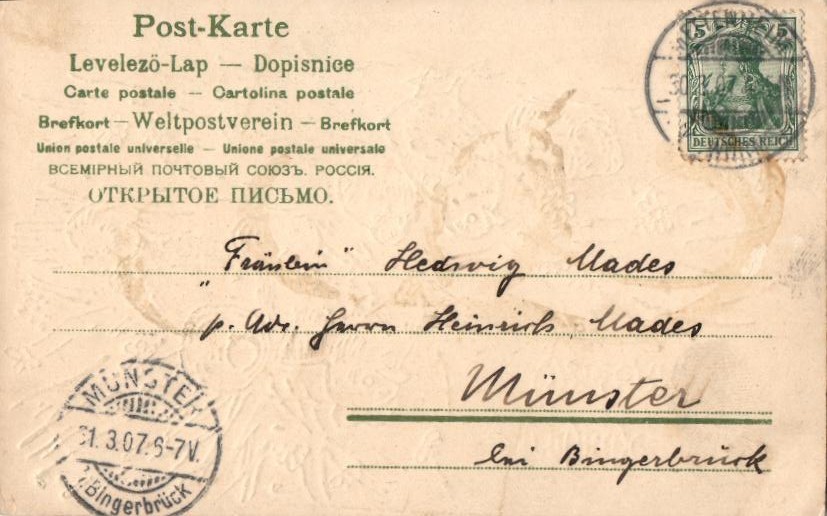 Post-Karte
Levelezö-Lap — Dopisnice
Carte postale — Cartolina postale
Brefkort — Weltpostverein — Brefkort
Union postale universelle — Unione postale universale
ВСЕМІРНЫЙ ПОЧТОВЫЙ СОЮЗЪ. РОССІЯ.
ОТКРЫТОЕ ПИСЬМО.
5 5
30.3.07
DEUTSCHES REICH
"Fräulein" Hedwig Mades
p. Adr. Herrn Heinrich Mades
Münster
bei Bingerbrück
MÜNSTER
31.3.07.6-7V.
Bingerbrück